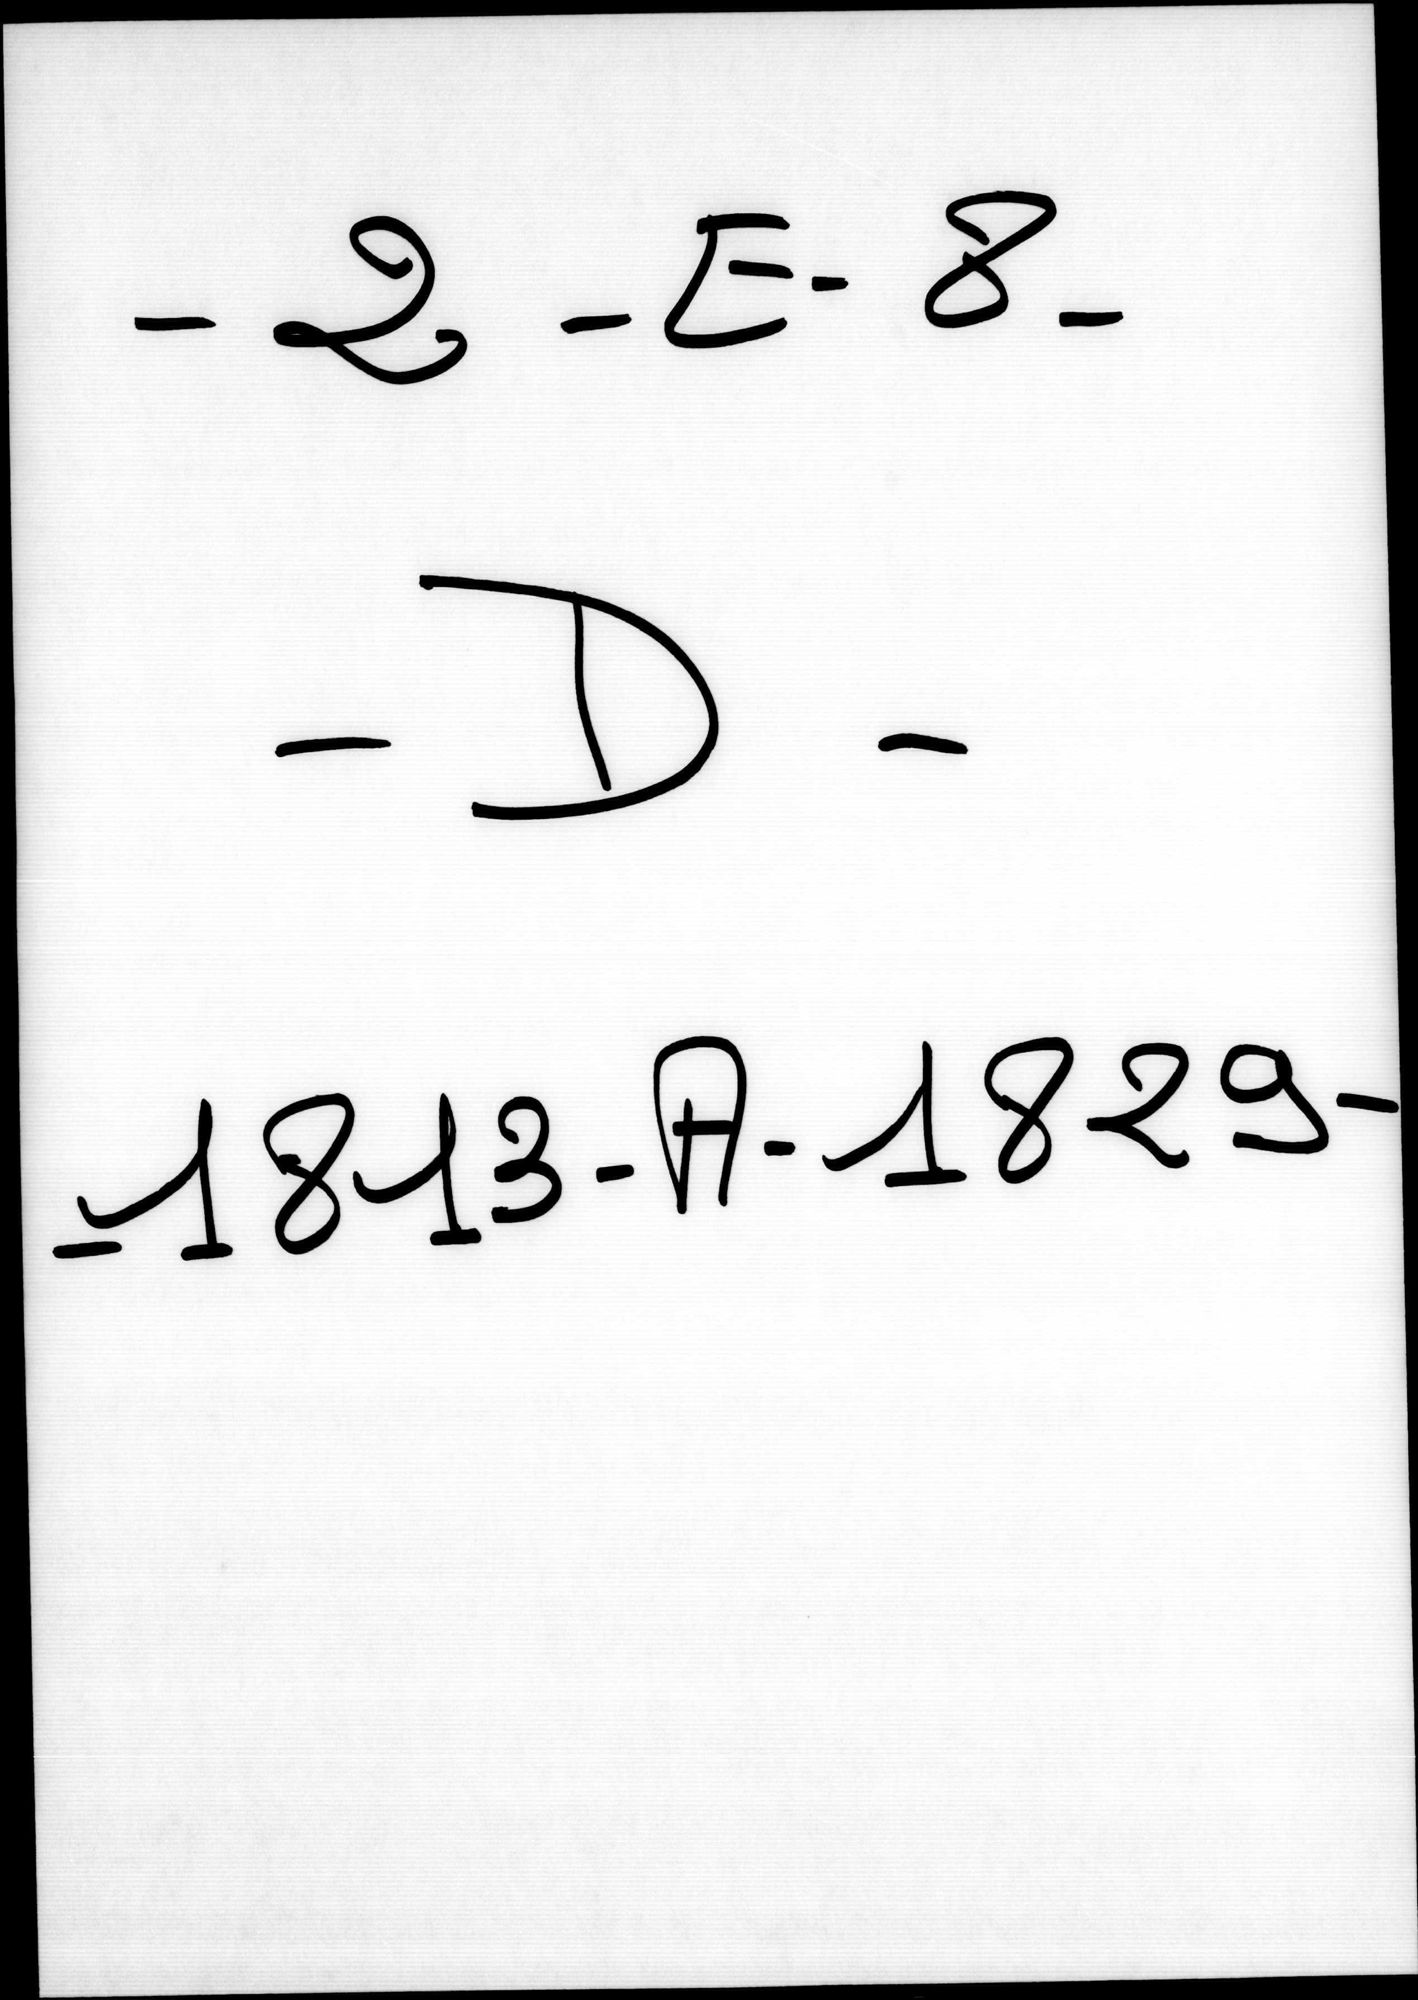 - 2 - E - 8 -
- D -
- 1813 - A - 1829 -